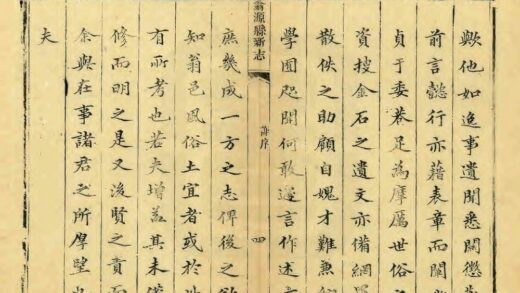 歟他如逸事遺聞悉關懲
前言懿行亦藉表章而闡
貞于委巷足為摩厲世俗之
資捜金石之遺文亦備網
散佚之助顧自媿才難兼
學囿咫聞何敢遽言作述
翁源縣新志
序
四
庶幾成一方之志俾後之欲
知翁邑風俗土宜者或於
有所考也若夫增益其未備
修而明之是又後賢之責而
余與在事諸君之所厚望也
夫